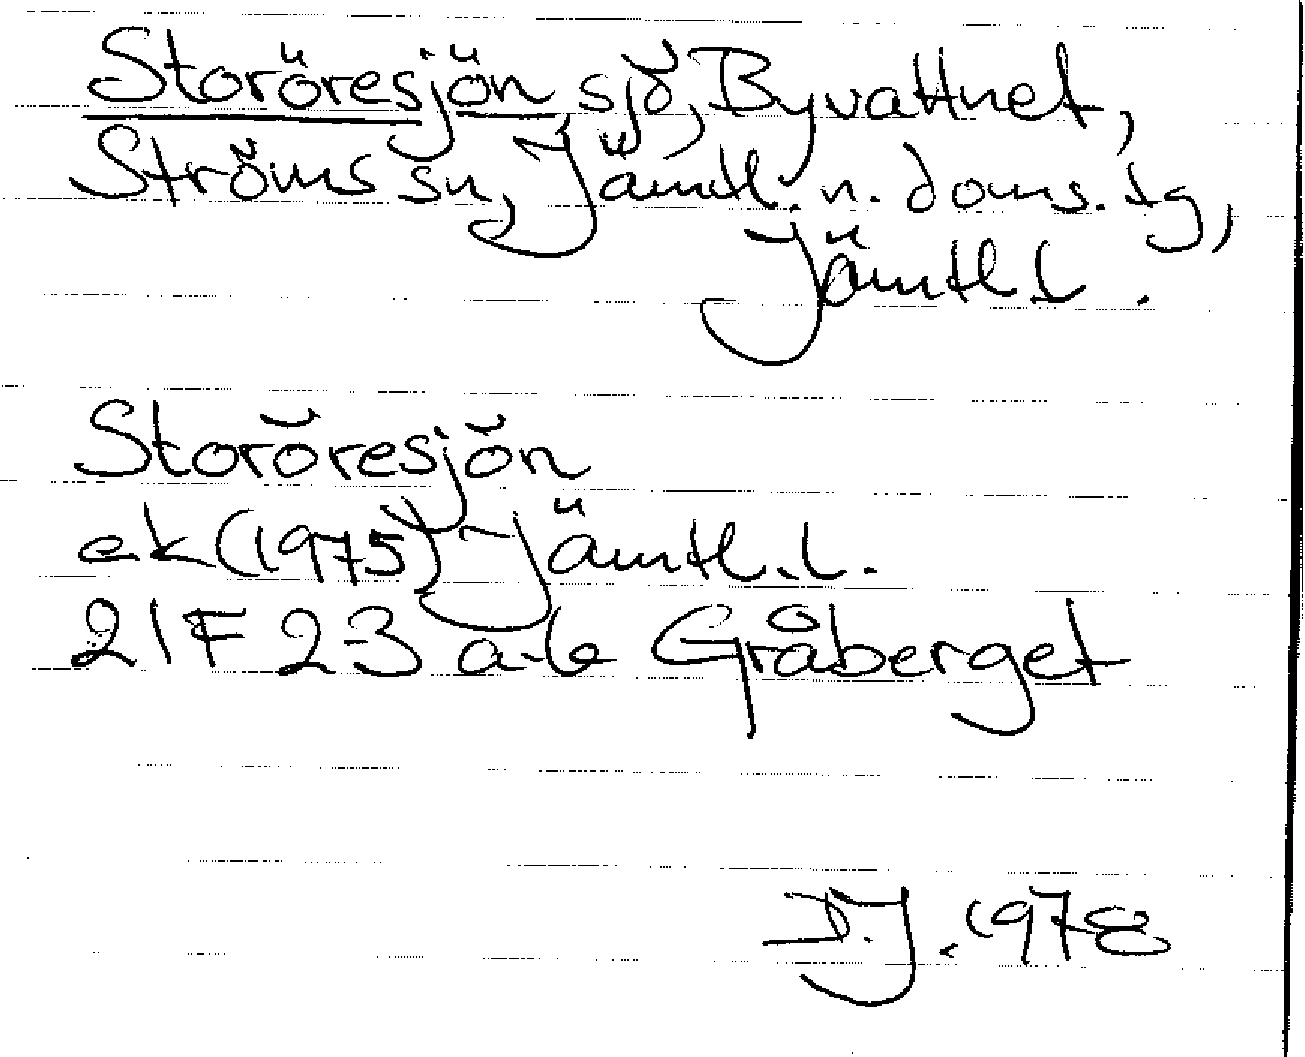 Storöresjön sjö, Byvattnet,
Ströms sn, Jämtl. n. doms. tg,
Jämtl. l.
Storöresjön
ek (1975) Jämtl. l.
21F 2-3 a-b Gråberget
D.J. 1978